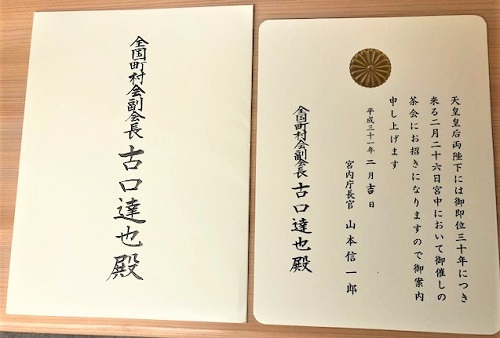 全国町村会副会長 古口達也殿
天皇皇后両陛下には御即位三十年につき
来る二月二十六日宮中において御催しの
茶会にお招きになりますので御案内
申し上げます
平成三十一年二月吉日
宮内庁長官 山本信一郎
全国町村会副会長 古口達也殿